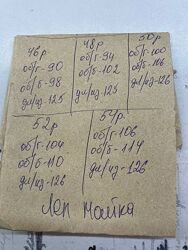 46р
об/г-90
об/б-98
дл/из-125
48р
об/г-94
об/б-102
дл/из-125
50р
об/г-100
об/б-106
дл/из-126
52р
об/г-104
об/б-110
дл/из-126
54р
об/г-106
об/б-114
дл/из-126
Леп майка